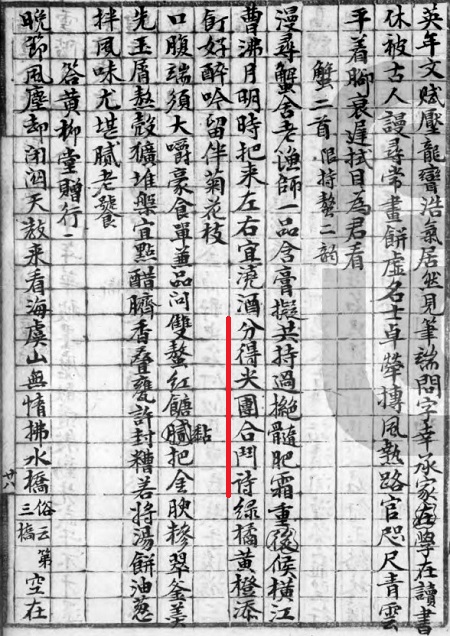 英年文賦壓龍鸞浩氣居然見筆端問字幸承家在學在讀書
休被古人謾尋常畫餅虛名士卓犖摶風熟路官咫尺青雲
平着腳衰遲拭目為君看
蟹二首限持螯二韵
漫尋蟹舍老漁師一品含膏擬共持過㨗髓肥霜重後候橫江
曹沸月明時把來左右宜澆酒分得尖團合鬥詩綠橘黃橙添
飣好醉吟留伴菊花枝
口腹端須大嚼豪食單兼品問雙螯紅饙膩點把金腴糝翠釜羹
先玉屑熬殼獷堆盤宜點醋臍香疊甕許封糟若將湯餅油葱
拌風味尤堪膩老饕
答黃柳堂贈行二
晩節風塵却閉泗天教来看海虞山無情拂水橋俗云第三橋空在
廿八